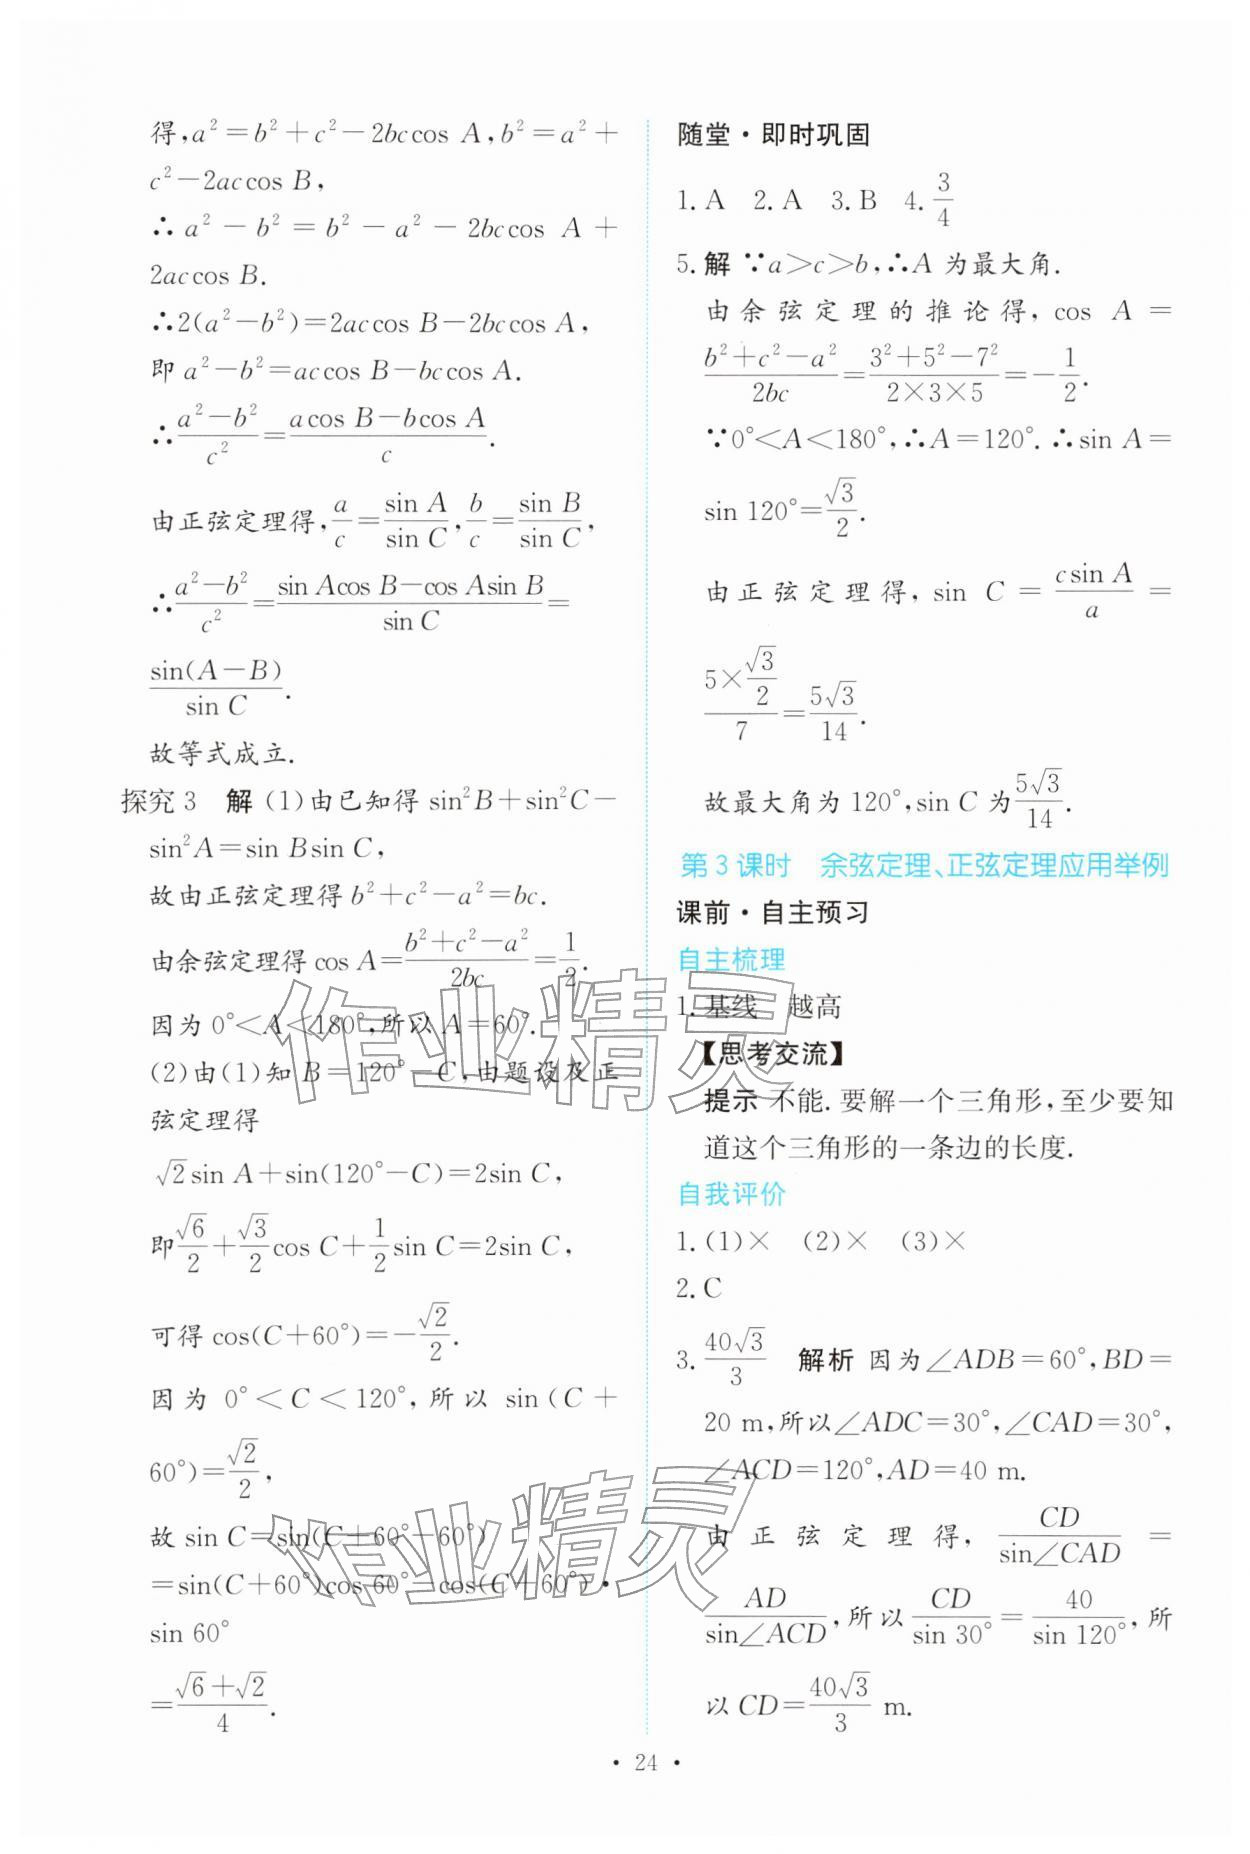 得,a²=b²+c²-2bccos A,b²=a²+
c²-2accos B,
∴a²-b²=b²-a²-2bccos A+
2accos B.
∴2(a²-b²)=2accos B-2bccos A,
即 a²-b²=accos B-bccos A.
∴(a²-b²)/c²=(acos B-bcos A)/c.
由正弦定理得,a/c=sin A/sin C,b/c=sin B/sin C,
∴(a²-b²)/c²=(sin Acos B-cos Asin B)/sin C=
sin(A-B)/sin C.
故等式成立.
探究3 解 (1)由已知得 sin²B+sin²C-
sin²A=sin Bsin C,
故由正弦定理得 b²+c²-a²=bc.
由余弦定理得 cos A=(b²+c²-a²)/2bc=1/2.
因为 0°<A<180°,所以 A=60°.
(2)由(1)知 B=120°-C,由题设及正
弦定理得
√2sin A+sin(120°-C)=2sin C,
即√6/2+√3/2cos C+1/2sin C=2sin C,
可得 cos(C+60°)=-√2/2.
因为 0°<C<120°,所以 sin(C+
60°)=√2/2,
故 sin C=sin(C+60°-60°)
=sin(C+60°)cos 60°-cos(C+60°)·
sin 60°
=(√6+√2)/4.
随堂·即时巩固
1. A 2. A 3. B 4. 3/4
5. 解 ∵a>c>b,∴A 为最大角.
由余弦定理的推论得,cos A=
(b²+c²-a²)/2bc=(3²+5²-7²)/(2×3×5)=-1/2.
∵0°<A<180°,∴A=120°.∴sin A=
sin 120°=√3/2.
由正弦定理得,sin C=csin A/a=
(5×√3/2)/7=5√3/14.
故最大角为 120°,sin C 为5√3/14.
第3课时 余弦定理、正弦定理应用举例
课前·自主预习
自主梳理
1. 基线 越高
【思考交流】
提示 不能. 要解一个三角形,至少要知
道这个三角形的一条边的长度.
自我评价
1. (1)× (2)× (3)×
2. C
3. 40√3/3 解析 因为∠ADB=60°,BD=
20 m,所以∠ADC=30°,∠CAD=30°,
∠ACD=120°,AD=40 m.
由正弦定理得,CD/sin∠CAD=
AD/sin∠ACD,所以CD/sin 30°=40/sin 120°,所
以 CD=40√3/3 m.
作业精灵
作业精灵
·24·